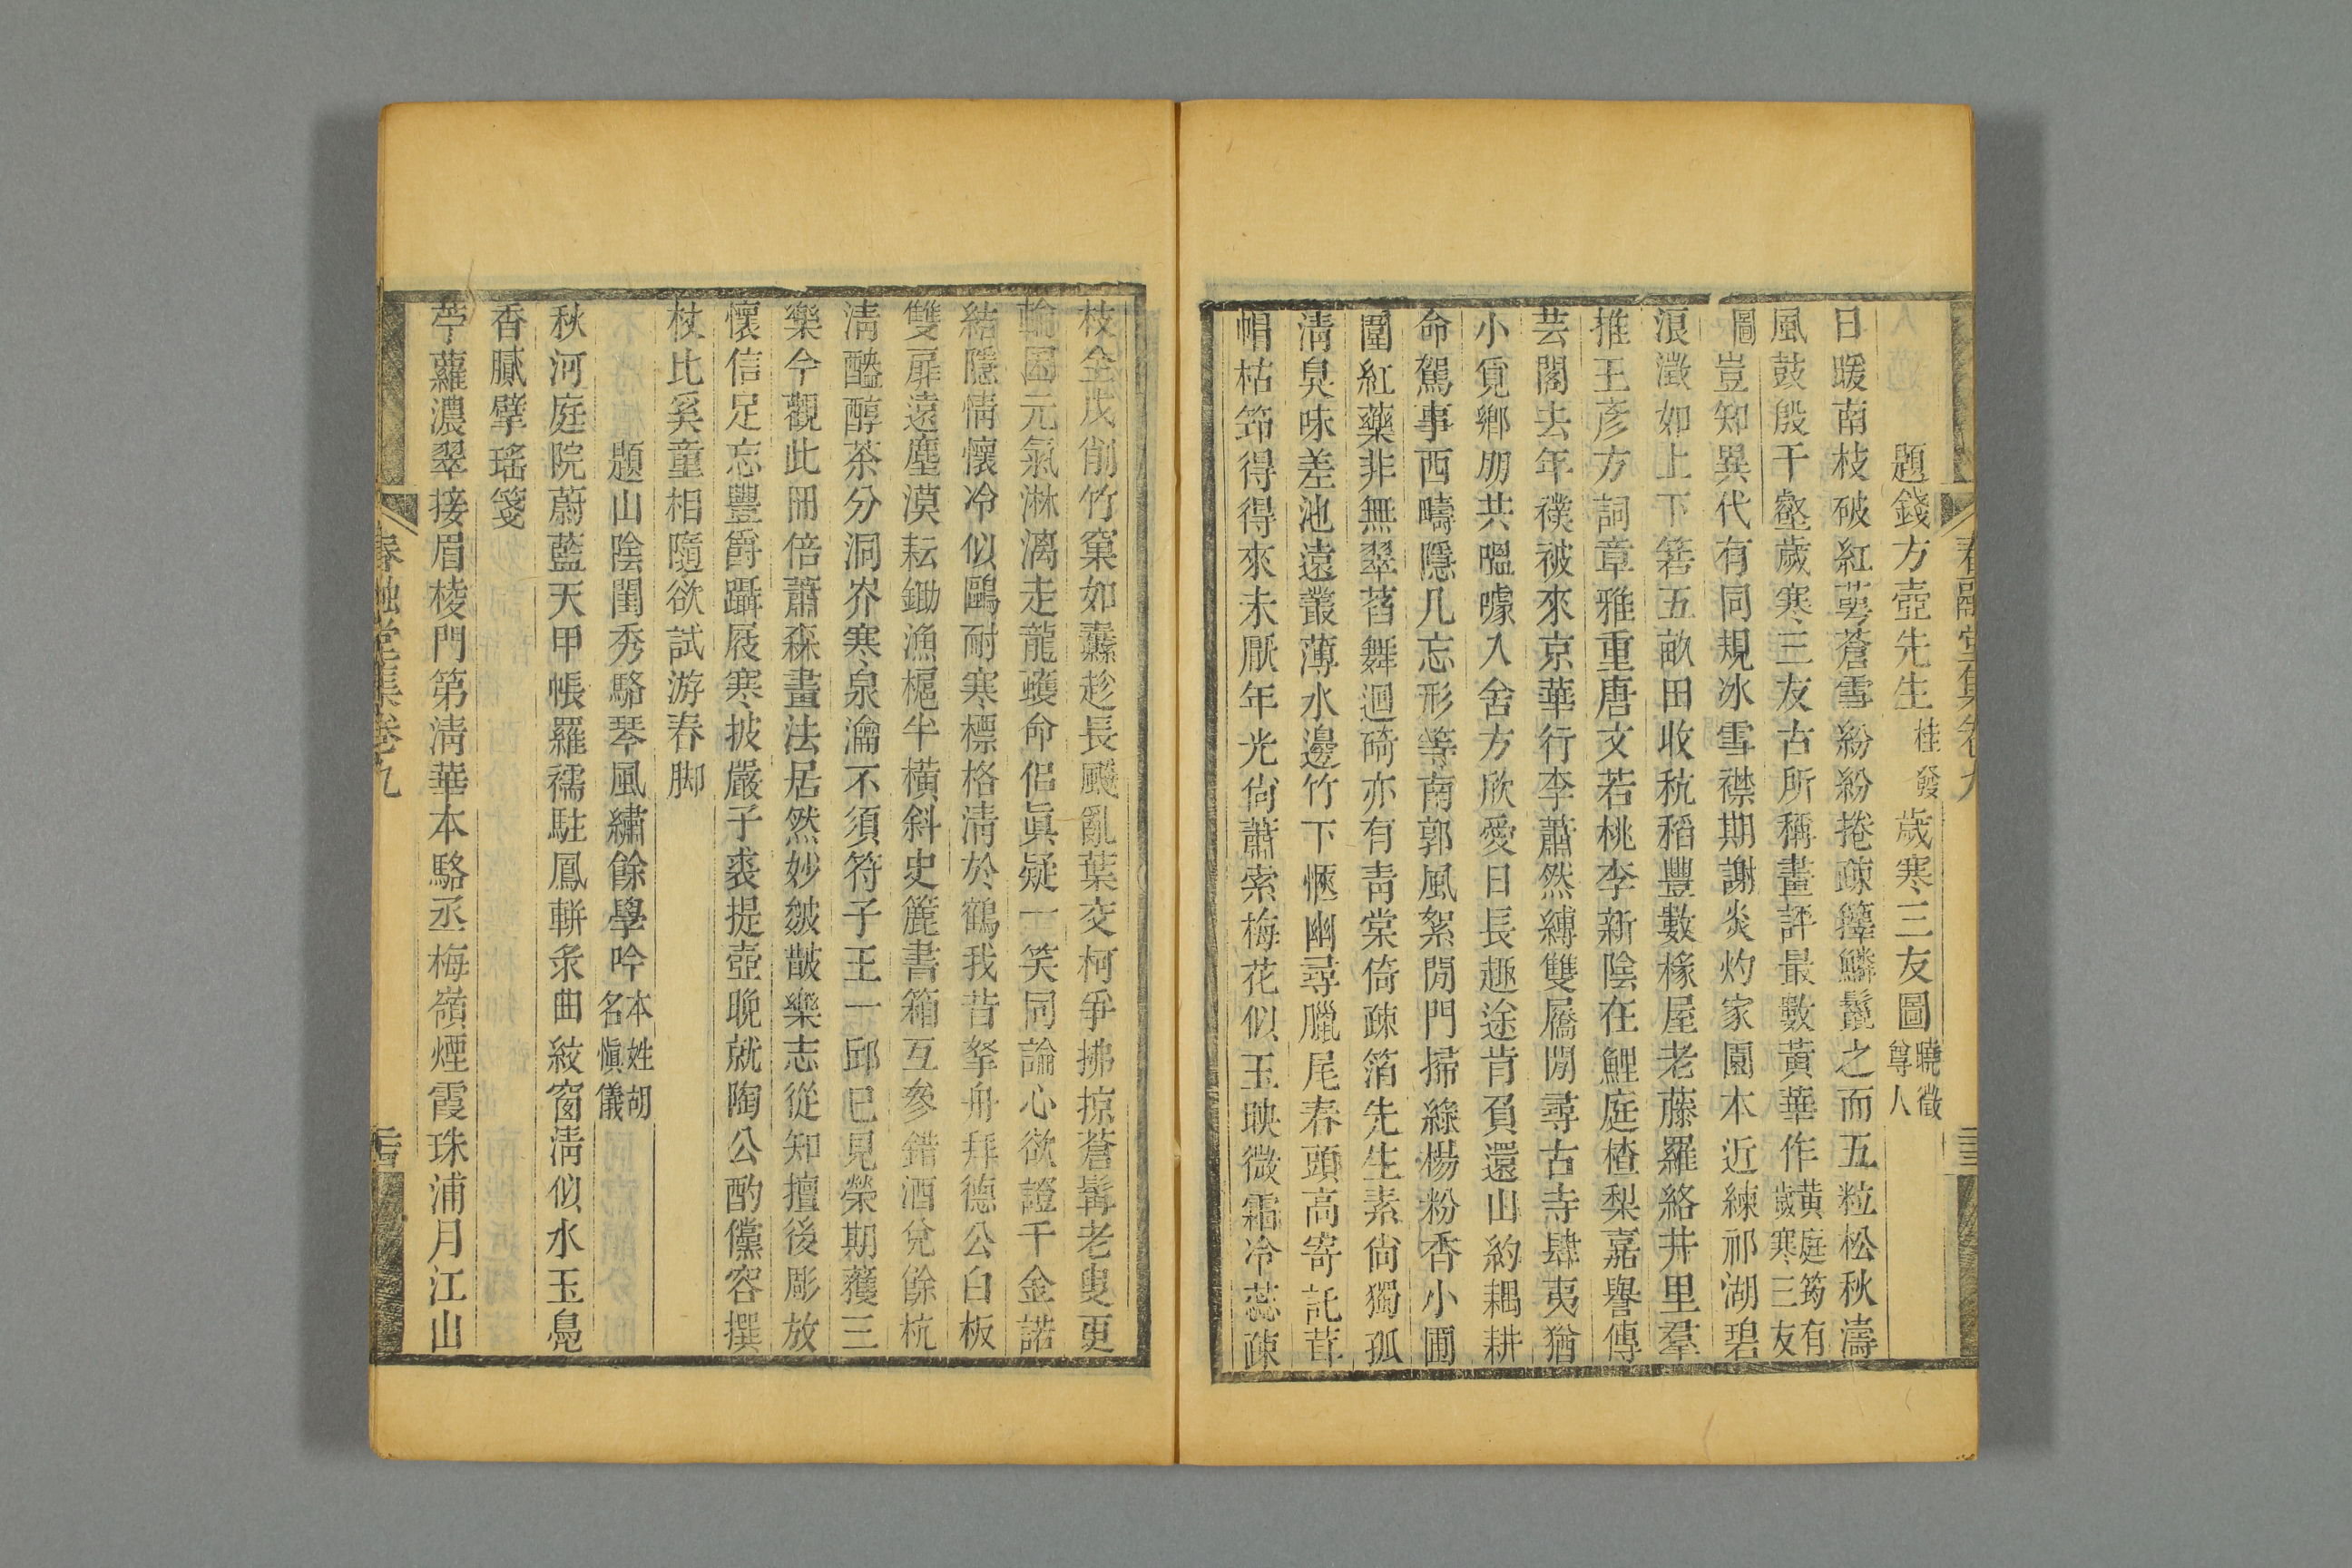 題錢方壺先生桂發歲寒三友圖曉徵尊人
日暖南枝破紅萼蒼雪紛紛捲疎籜鱗鬣之而五粒松秋濤
風鼓殷千壑歲寒三友古所稱畫評最數黃華作黃庭筠有歲寒三友
圖豈知異代有同規冰雪襟期謝炎灼家園本近練祁湖碧
浪澂如上下箬五畝田收秔稻豐數椽屋老藤羅絡井里羣
推王彥方詞章雅重唐文若桃李新陰在鯉庭楂梨嘉譽傳
芸閣去年襆被來京華行李蕭然縛雙屩閒尋古寺肆夷猶
小覓鄉朋共嗢噱入舍方欣愛日長趣途肯負還山約耦耕
命駕事西疇隱几忘形等南郭風絮閒門掃綠楊粉香小圃
圍紅藥非無翠苕舞迴碕亦有青棠倚疎箔先生素尙獨孤
清臭味差池遠叢薄水邊竹下愜幽尋臘尾春頭高寄託茸
帽枯筇得得來未厭年光尙蕭索梅花似玉映微霜冷蕊疎
枝全戍削竹窠如纛趁長颷亂葉交柯爭拂掠蒼髯老叟更
輪囷元氣淋漓走龍蠖命侶眞疑一笑同論心欲證千金諾
結隱情懷冷似鷗耐寒標格清於鶴我昔拏舟拜德公白板
雙扉遠塵漠耘鋤漁槴半橫斜史簏書箱互參錯酒兌餘杭
清醠醇茶分洞岕寒泉瀹不須符子王一邱已見榮期蒦三
樂今觀此冊倍蕭森畫法居然妙皴皵樂志從知擅後彫放
懷信足忘豐爵躡屐寒披嚴子裘提壺晚就陶公酌儻容撰
杖比奚童相隨欲試游春脚
題山陰閨秀駱琴風繡餘學吟本姓胡名愼儀
秋河庭院蔚藍天甲帳羅襦駐鳳輧汖曲紋窗清似水玉鳧
香膩擘瑤箋
苧蘿濃翠接眉棱門第清華本駱丞梅嶺煙霞珠浦月江山
春融堂集卷九